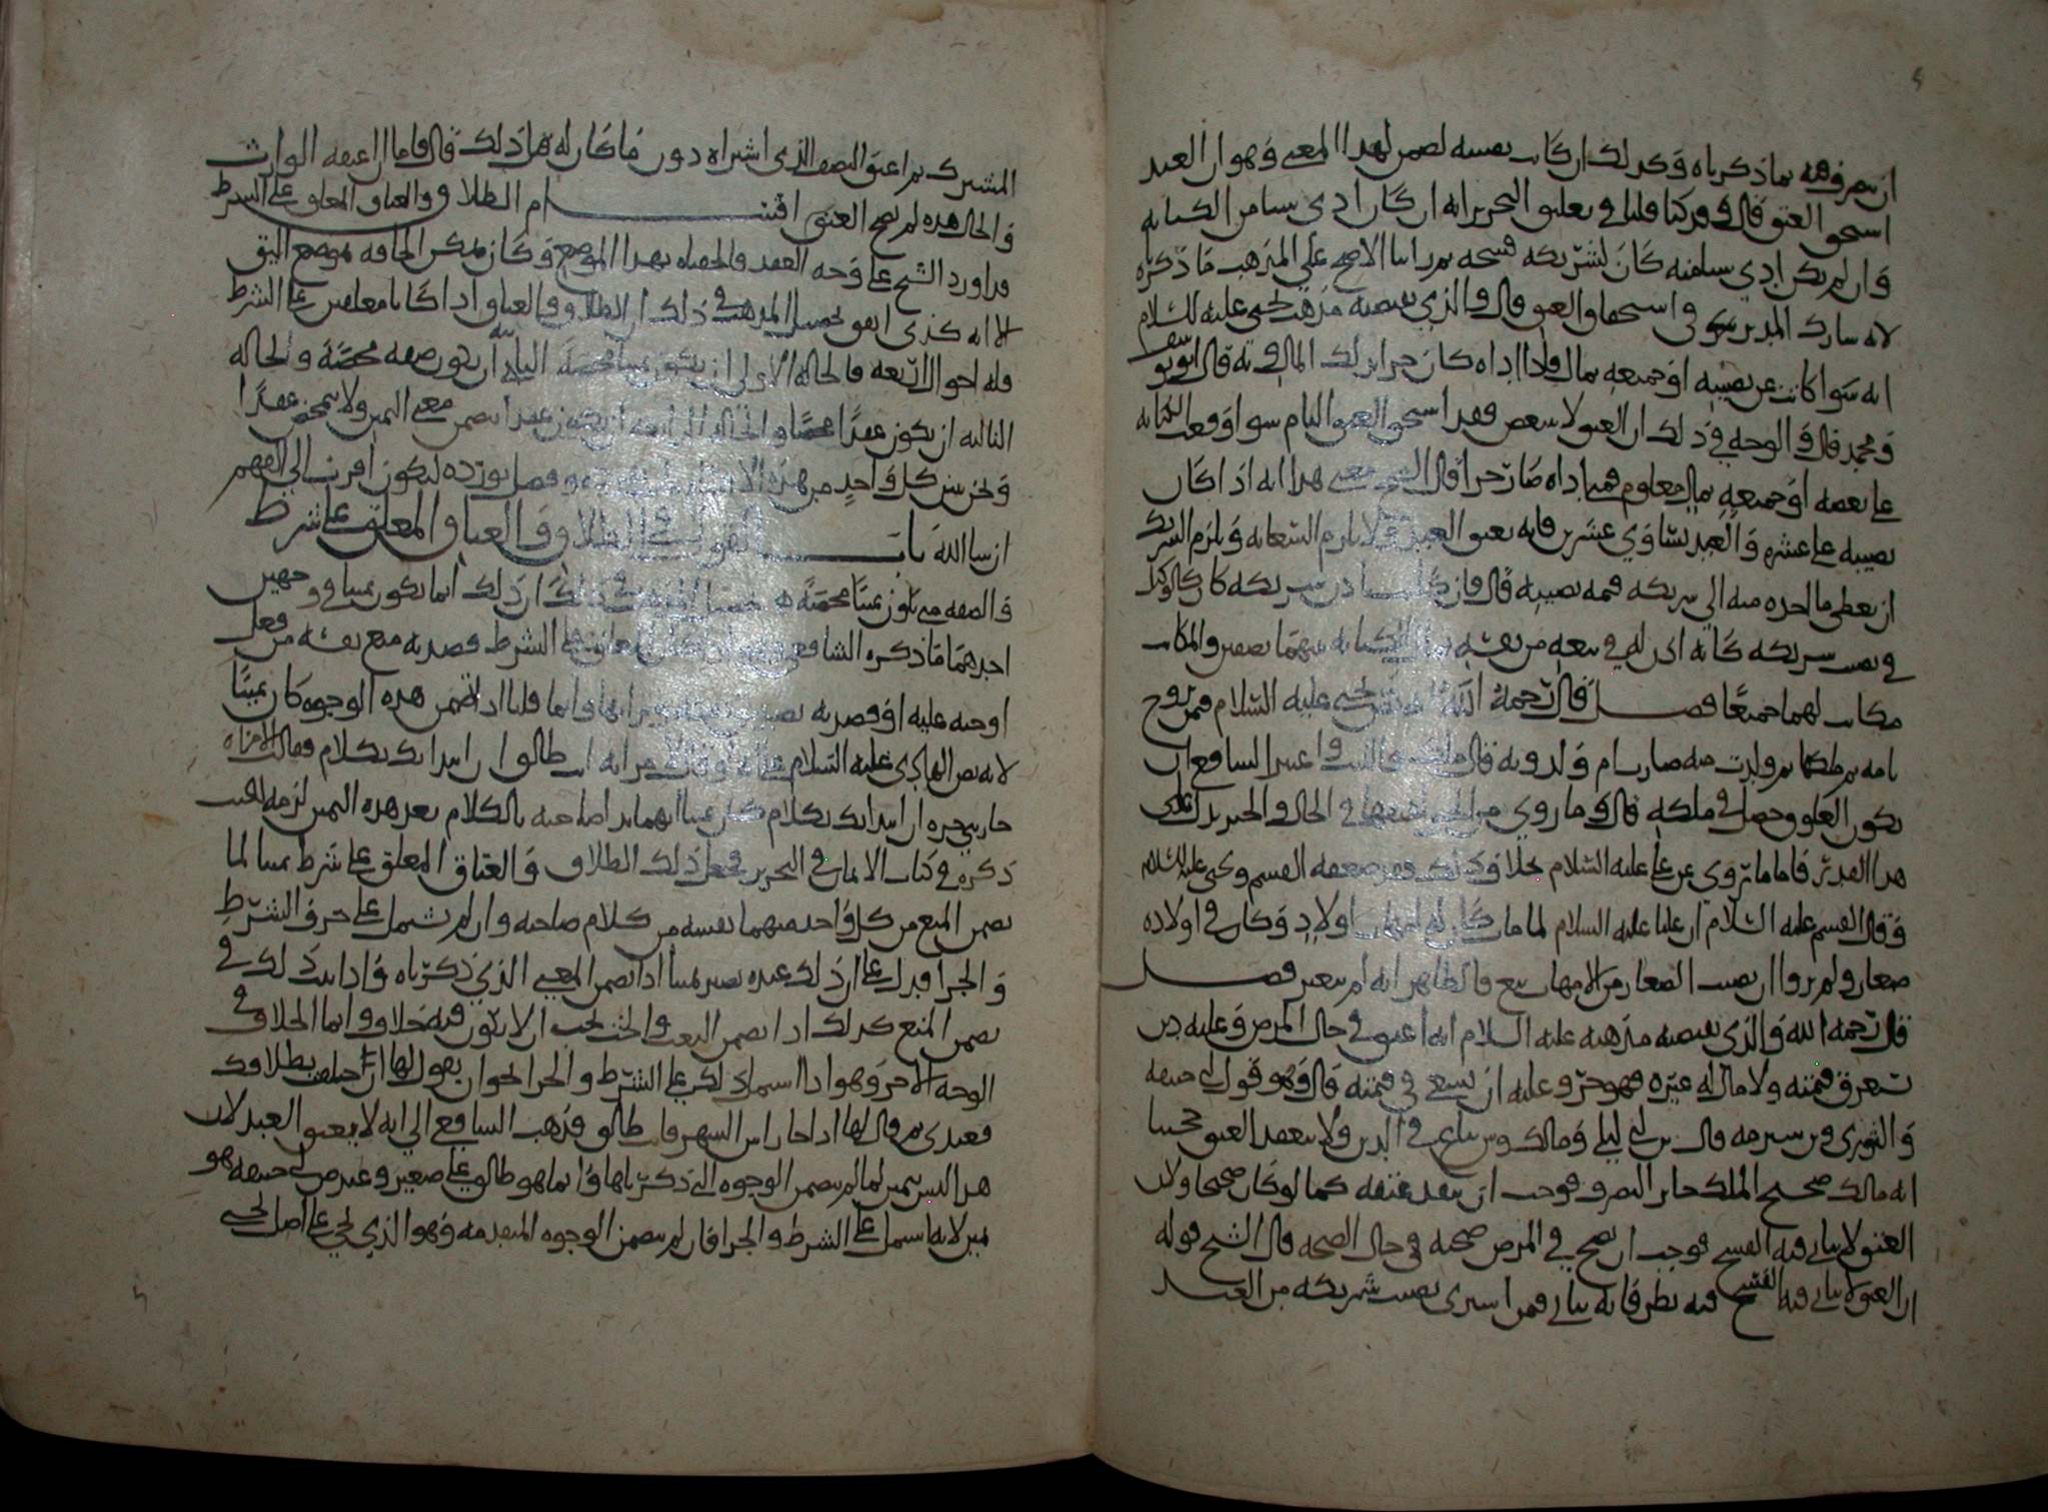 ان يتصرف فيه بما ذكرناه وكذلك ان كاتب نصيبه يضمن لهذا المعنى وهو ان العبد
استحق العتق قال وقد كنا قلنا في تعليق التحرير انه ان كان ادى شيئا من الكتابة
وان لم يكن ادى شيئا منه كان لشريكه فسخه ثم راينا الاصح على المذهب ما ذكرناه
لانه شارك المدبر واستحقاق العتق قال والذي يقتضيه مذهب يحيى عليه السلام
انه سوا كاتب عن نصيبه او جميعه بمال فاذا اداه كان حرا بذلك المال وبه قال ابو يوسف
ومحمد قال والوجه في ذلك ان العتق لا يتبعض فقد استحق العتق التام سوا وقعت الكتابة
على بعضه او جميعه بمال معلوم فمتى اداه صار حرا قال الشيخ معنى هذا انه اذا كان
نصيبه على عشرة والعبد يساوي عشرين فانه يعتق العبد ولا يلزم السعاية ويلزم الشريك
ان يعطي ما اخذه منه الى شريكه قيمة نصيبه قال فان كاتب باذن شريكه كان كالوكيل
في نصيب شريكه كانه اذن له في بيعه من نفسه الكتابة بينهما نصفين والمكاتب
مكاتب لهما جميعا فصل قال رحمه الله يحيى عليه السلام فمن تزوج
بامة ثم ملكها ثم ولدت منه صارت ام ولد وبه قال مالك والليث واعتبر الشافعي ان
يكون العلوق حصل في ملكه قال وما روي من الخبر في الحال والخبر يدل على
هذا القدر فاما ما روي عن علي عليه السلام بخلاف ذلك فقد ضعفه القسم ويحيى عليهما السلام
وقال القسم عليه السلام ان عليا عليه السلام لما مات كان له امهات اولاد وكان في اولاده
صغار ولم يروا ان نصيب الصغار من الامهات بيع فالظاهر انه لم يتغير فصل
قال رحمه الله والذي يقتضيه مذهبه عليه السلام انه اعتق في حال المرض وعليه دين
يستغرق قيمته ولا مال له غيره فهو حر وعليه ان يسعى في قيمته قال وهو قول ابي حنيفة
والثوري وبن شبرمة قال بن ابي ليلى ومالك وش يباع في الدين ولا ينعقد العتق حجتنا
انه مالك صحيح الملك جايز التصرف فوجب ان ينفذ عتقه كما لو كان صحيحا ولان
العتق لا يتاتى فيه الفسخ فوجب ان يصح في المرض صحته في حال الصحة قال الشيخ قوله
ان العتق لا يتاتى فيه الفسخ فيه نظر فانه يتاتى فمن اشترى نصيب شريكه من العبد
المشترك ثم اعتق النصف الذي اشتراه دون ما كان له قبل ذلك قال فاما ان اعتقه الوارث
والحال هذه لم يصح العتق اقسام الطلاق والعتاق المعلق على الشرط
قد اورد الشيخ على وجه العقد والحصاه بهذا الموضع وكان يمكن الحاقه بموضع اليق
الا انه كذى اتفق تحصيل المذهب في ذلك ان الطلاق والعتاق اذا كانا معلقين على الشرط
فله احوال اربعة فالحالة الاولى ان يكون يمينا محضة الثانية ان يكون صفة محضة والحالة
الثالثة ان يكون عقدا محضا والحالة الرابعة ان يكون عقدا يتضمن معنى اليمين ولا يتمحض عقدا
ونحن نبين كل واحد من هذه وفصل نورده ليكون اقرب الى الفهم
ان شا الله باب القول في الطلاق والعتاق المعلق على شرط
والصفة متى يكون يمينا محضة تحصيل المذهب في ذلك ان ذلك انما يكون يمينا في وجهين
احدهما ما ذكره الشافعي على الشرط قصد به منع نفسه من فعل
اوجبه عليه او قصد به وانما قلنا اذا تضمن هذه الوجوه كان يمينا
لانه نص الهادي عليه السلام على انه لو قال لامراته انت طالق ان ابتداتك بكلام فقالت الامراة
جاريتي حرة ان ابتداتك بكلام كان يمينا ايهما بدا صاحبه بالكلام بعد هذه اليمين لزمه الحنث
ذكره في كتاب الايمان في التحرير فجعل ذلك الطلاق والعتاق المعلق على شرط يمينا لما
تضمن المنع من كل واحد منهما نفسه من كلام صاحبه وان لم يشتمل على حرف الشرط
والجزا فدل على ان ذلك عنده يصير يمينا اذا تضمن المعنى الذي ذكرناه واذا ثبت ذلك في
تضمن المنع كذلك اذا تضمن البعث والحث يجب ان لا يكون فيه خلاف وانما الخلاف في
الوجه الاخر وهو اذا اشتمل ذلك على الشرط والجزا نحو ان يقول لها ان حلفت بطلاقك
فعبدي ثم قال لها اذا جا راس الشهر فانت طالق فذهب الشافعي الى انه لا يعتق العبد لان
هذا ليس بيمين لما لم يتضمن الوجوه التي ذكرناها وانما هو طالق على صغير وعند ص ابي حنيفة هو
يمين لانه اشتمل على الشرط والجزا فان لم يتضمن الوجوه المتقدمة وهو الذي يجي على اصل يحيى